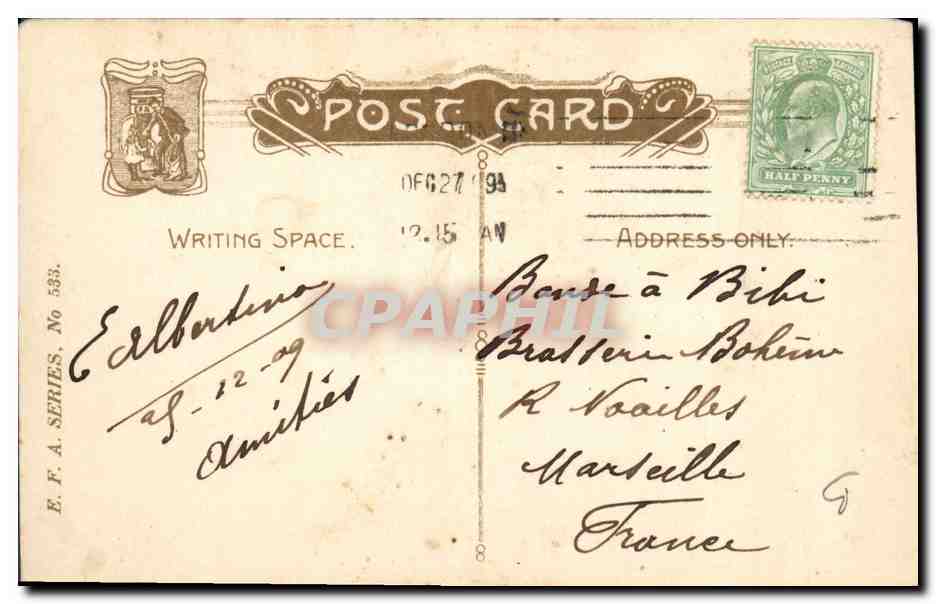 POST CARD
POSTAGE REVENUE
HALF PENNY
DEC 27 09
12.15 AM
WRITING SPACE.
ADDRESS ONLY.
E Albertino
25-12-09
Amitiés
Bande à Bibi
Brasserie Bohème
R Noailles
Marseille
France
E. F. A. SERIES, No 533.
CPAPHIL